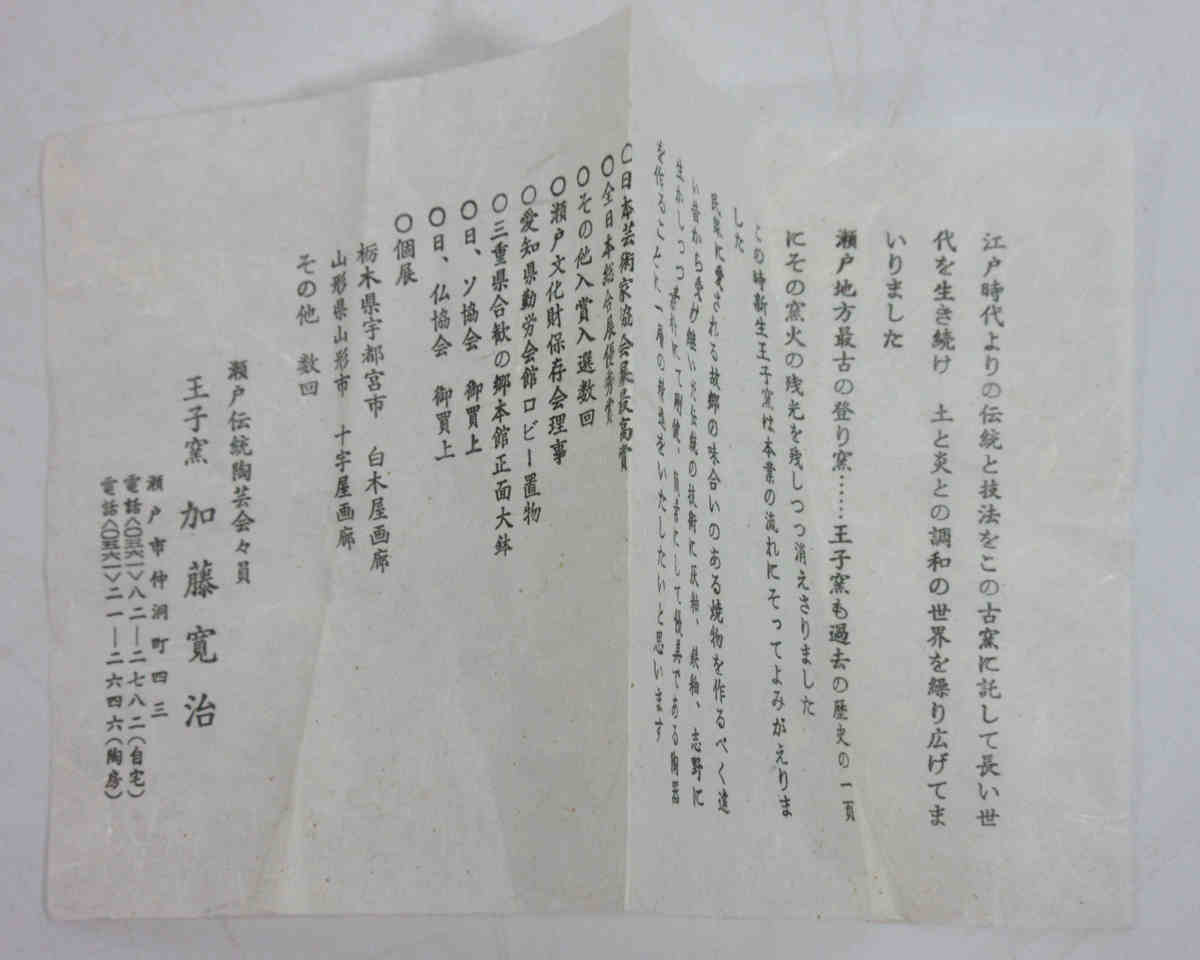 江戸時代よりの伝統と技法をこの古窯に託して長い世
代を生き続け　土と炎との調和の世界を繰り広げてま
いりました
瀬戸地方最古の登り窯……王子窯も過去の歴史の一頁
にその窯火の残光を残しつつ消えさりました
この時新生王子窯は本業の流れにそってよみがえりま
した
民衆に愛される故郷の味合いのある焼物を作るべく遠
い昔から受け継いだ伝統の技術に灰釉、鉄釉、志野に
生かしつつ
を作ることに一層の精進をいたしたいと思います
〇日本芸術家協会展最高賞
〇全日本総合展優秀賞
〇その他入賞入選数回
〇瀬戸文化財保存会理事
〇愛知県勤労会館ロビー置物
〇三重県合歓の郷本館正面大鉢
〇日、ソ協会　御買上
〇日、仏協会　御買上
〇個展
栃木県宇都宮市　白木屋画廊
山形県山形市　十字屋画廊
その他　数回
瀬戸伝統陶芸会々員
王子窯　加藤寛治
瀬戸市仲洞町四三
電話〈〇五六一〉八二―二七八二(自宅)
電話〈〇五六一〉二一―二六四六(陶房)